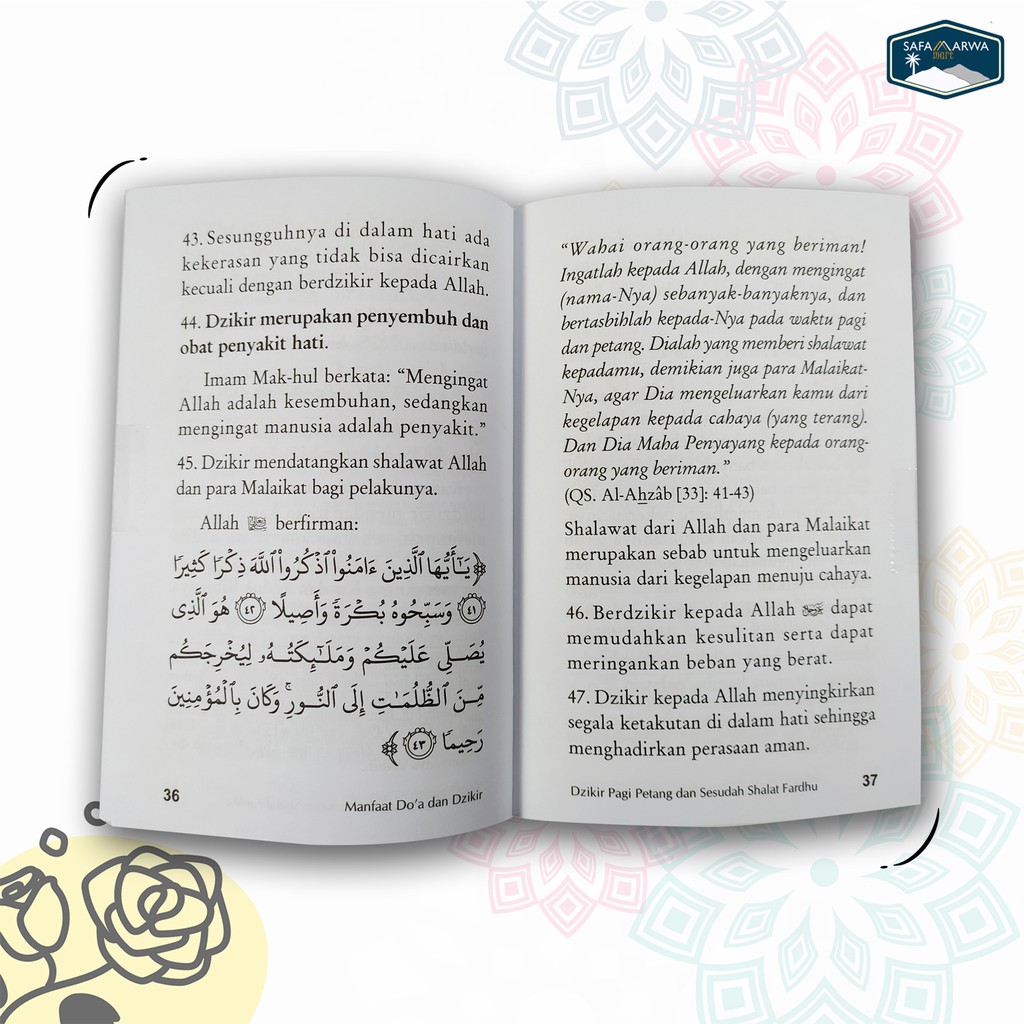 SAFA MARWA
mart
43. Sesungguhnya di dalam hati ada
kekerasan yang tidak bisa dicairkan
kecuali dengan berdzikir kepada Allah.
44. Dzikir merupakan penyembuh dan
obat penyakit hati.
Imam Mak-hul berkata: “Mengingat
Allah adalah kesembuhan, sedangkan
mengingat manusia adalah penyakit.”
45. Dzikir mendatangkan shalawat Allah
dan para Malaikat bagi pelakunya.
Allah berfirman:
﴿ يَـٰٓأَيُّهَا ٱلَّذِينَ ءَامَنُوا۟ ٱذْكُرُوا۟ ٱللَّهَ ذِكْرًا كَثِيرًا
۝٤١ وَسَبِّحُوهُ بُكْرَةً وَأَصِيلًا ۝٤٢ هُوَ ٱلَّذِى
يُصَلِّى عَلَيْكُمْ وَمَلَـٰٓئِكَتُهُۥ لِيُخْرِجَكُم
مِّنَ ٱلظُّلُمَـٰتِ إِلَى ٱلنُّورِ ۚ وَكَانَ بِٱلْمُؤْمِنِينَ
رَحِيمًا ۝٤٣ ﴾
36
Manfaat Do’a dan Dzikir
“Wahai orang-orang yang beriman!
Ingatlah kepada Allah, dengan mengingat
(nama-Nya) sebanyak-banyaknya, dan
bertasbihlah kepada-Nya pada waktu pagi
dan petang. Dialah yang memberi shalawat
kepadamu, demikian juga para Malaikat-
Nya, agar Dia mengeluarkan kamu dari
kegelapan kepada cahaya (yang terang).
Dan Dia Maha Penyayang kepada orang-
orang yang beriman.”
(QS. Al-Ahzâb [33]: 41-43)
Shalawat dari Allah dan para Malaikat
merupakan sebab untuk mengeluarkan
manusia dari kegelapan menuju cahaya.
46. Berdzikir kepada Allah dapat
memudahkan kesulitan serta dapat
meringankan beban yang berat.
47. Dzikir kepada Allah menyingkirkan
segala ketakutan di dalam hati sehingga
menghadirkan perasaan aman.
Dzikir Pagi Petang dan Sesudah Shalat Fardhu
37